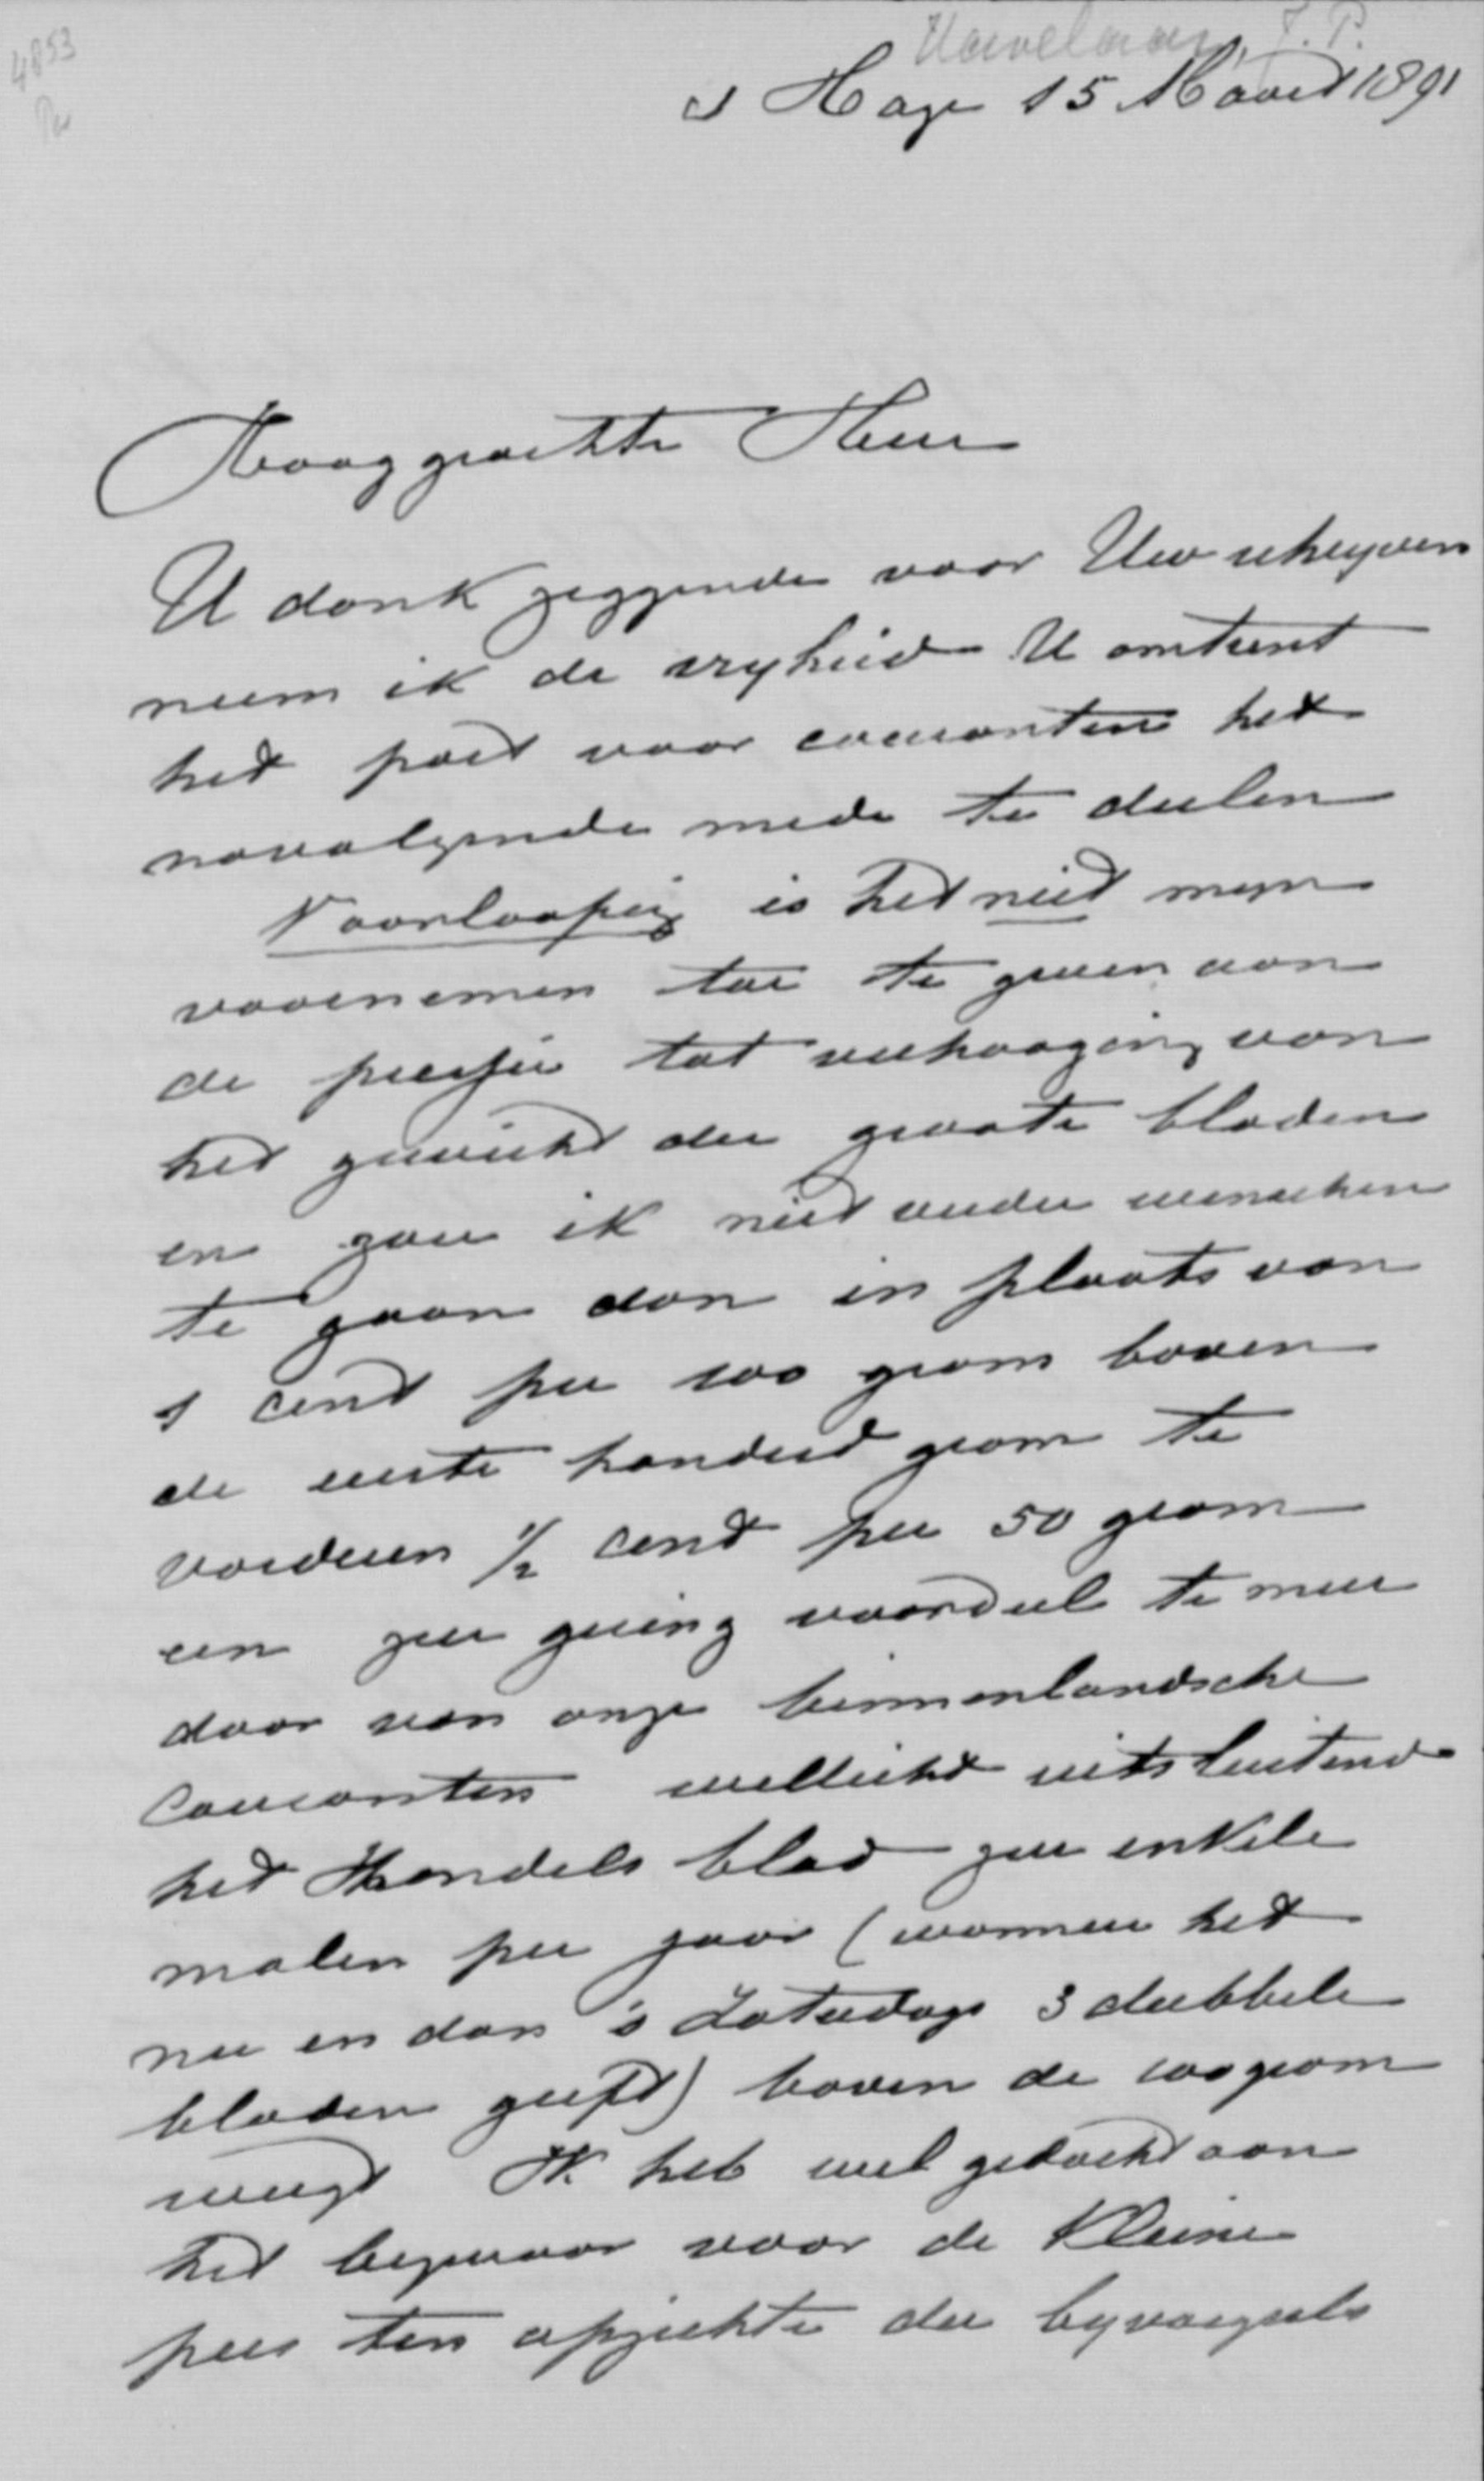 4853
Havelaar, J. P.
's Hage 15 Maart 1891
Hooggeachte Heer
U dank zeggende voor Uw schrijven
neem ik de vryheid U omtrent
het port voor couranten het
navolgende mede te deelen
Voorloopig is het niet myn
voornemen toe te geven aan
de pressie tot verhooging van
het gewicht der groote bladen
en zou ik niet verder wenschen
te gaan dan in plaats van
1 cent per 100 gram boven
de eerste honderd gram te
vorderen ½ cent per 50 gram
een zeer gering voordeel te meer
daar van onze binnenlandsche
couranten wellicht uitsluitend
het Handelsblad zeer enkele
malen per jaar (wanneer het
nu en dan 's Zaterdags 3 dubbele
bladen geeft) boven de 100 gram
weegt Ik heb wel gedacht aan
het bezwaar voor de kleine
pers ten opzichte der byvoegsels